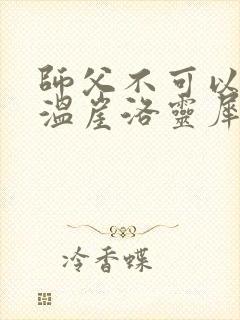 師父不可以
溫崖洛靈犀
冷香蝶